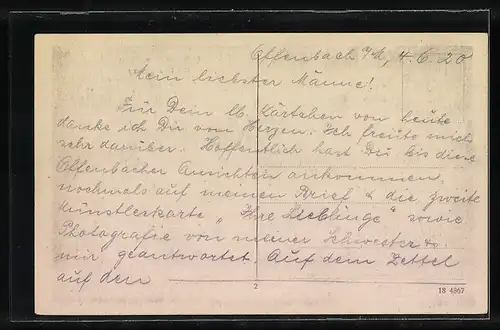 Offenbach a/M, 4.6.20
Mein liebster Männe!
Für Dein lb. Kärtchen von heute
danke ich Dir von Herzen. Ich freute mich
sehr darüber. Hoffentlich hast Du, bis diese
Offenbacher Ansichten ankommen,
nochmals auf meinen Brief & die zweite
Künstlerkarte „Ihre Lieblinge" sowie
Photografie von meiner Schwester &
mir geantwortet. Auf dem Zettel
auf den
2
18 4867